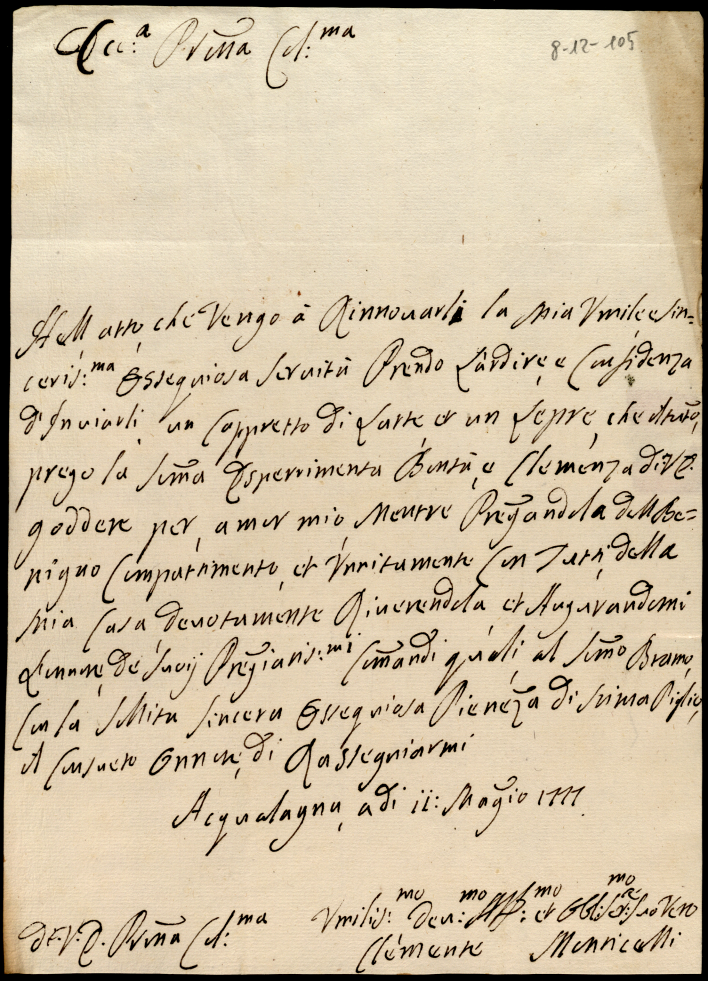 Ecc:a Prona Col:ma
8-12-105
Nell atto, che Vengo à Rinnouarli la Mia Vmile e Sin=
ceris:ma Essequiosa Seruitù Prendo L'ardire, e Confidenza
d'Inuiarli un Cappretto di Latte et un Lepre, che il tutto,
prego la Soma Esperrimenta Bontà, e Clemenza di V.E.
goddere per amor mio, Mentre Pregandola dell Be=
nigno Compattimento, et Vnitamente Con Tutti della
Mia Casa deuotamente Riuerendola, et Augurandomi
L'onnore, de Suoij Pregiatis:mi Comandi quali al Somo Bramo,
Con la Sollita Sincera Essequiosa Pienezza di Stima Piglio,
il Consueto Onnore, di Rassegniarmi
Acqualagna, adi 11: Magio 1777
Di V. E. Prona Col:ma
Vmilis:mo Deu:mo et Obl:mo Ser:re Suo Vero
Clemente Monticelli